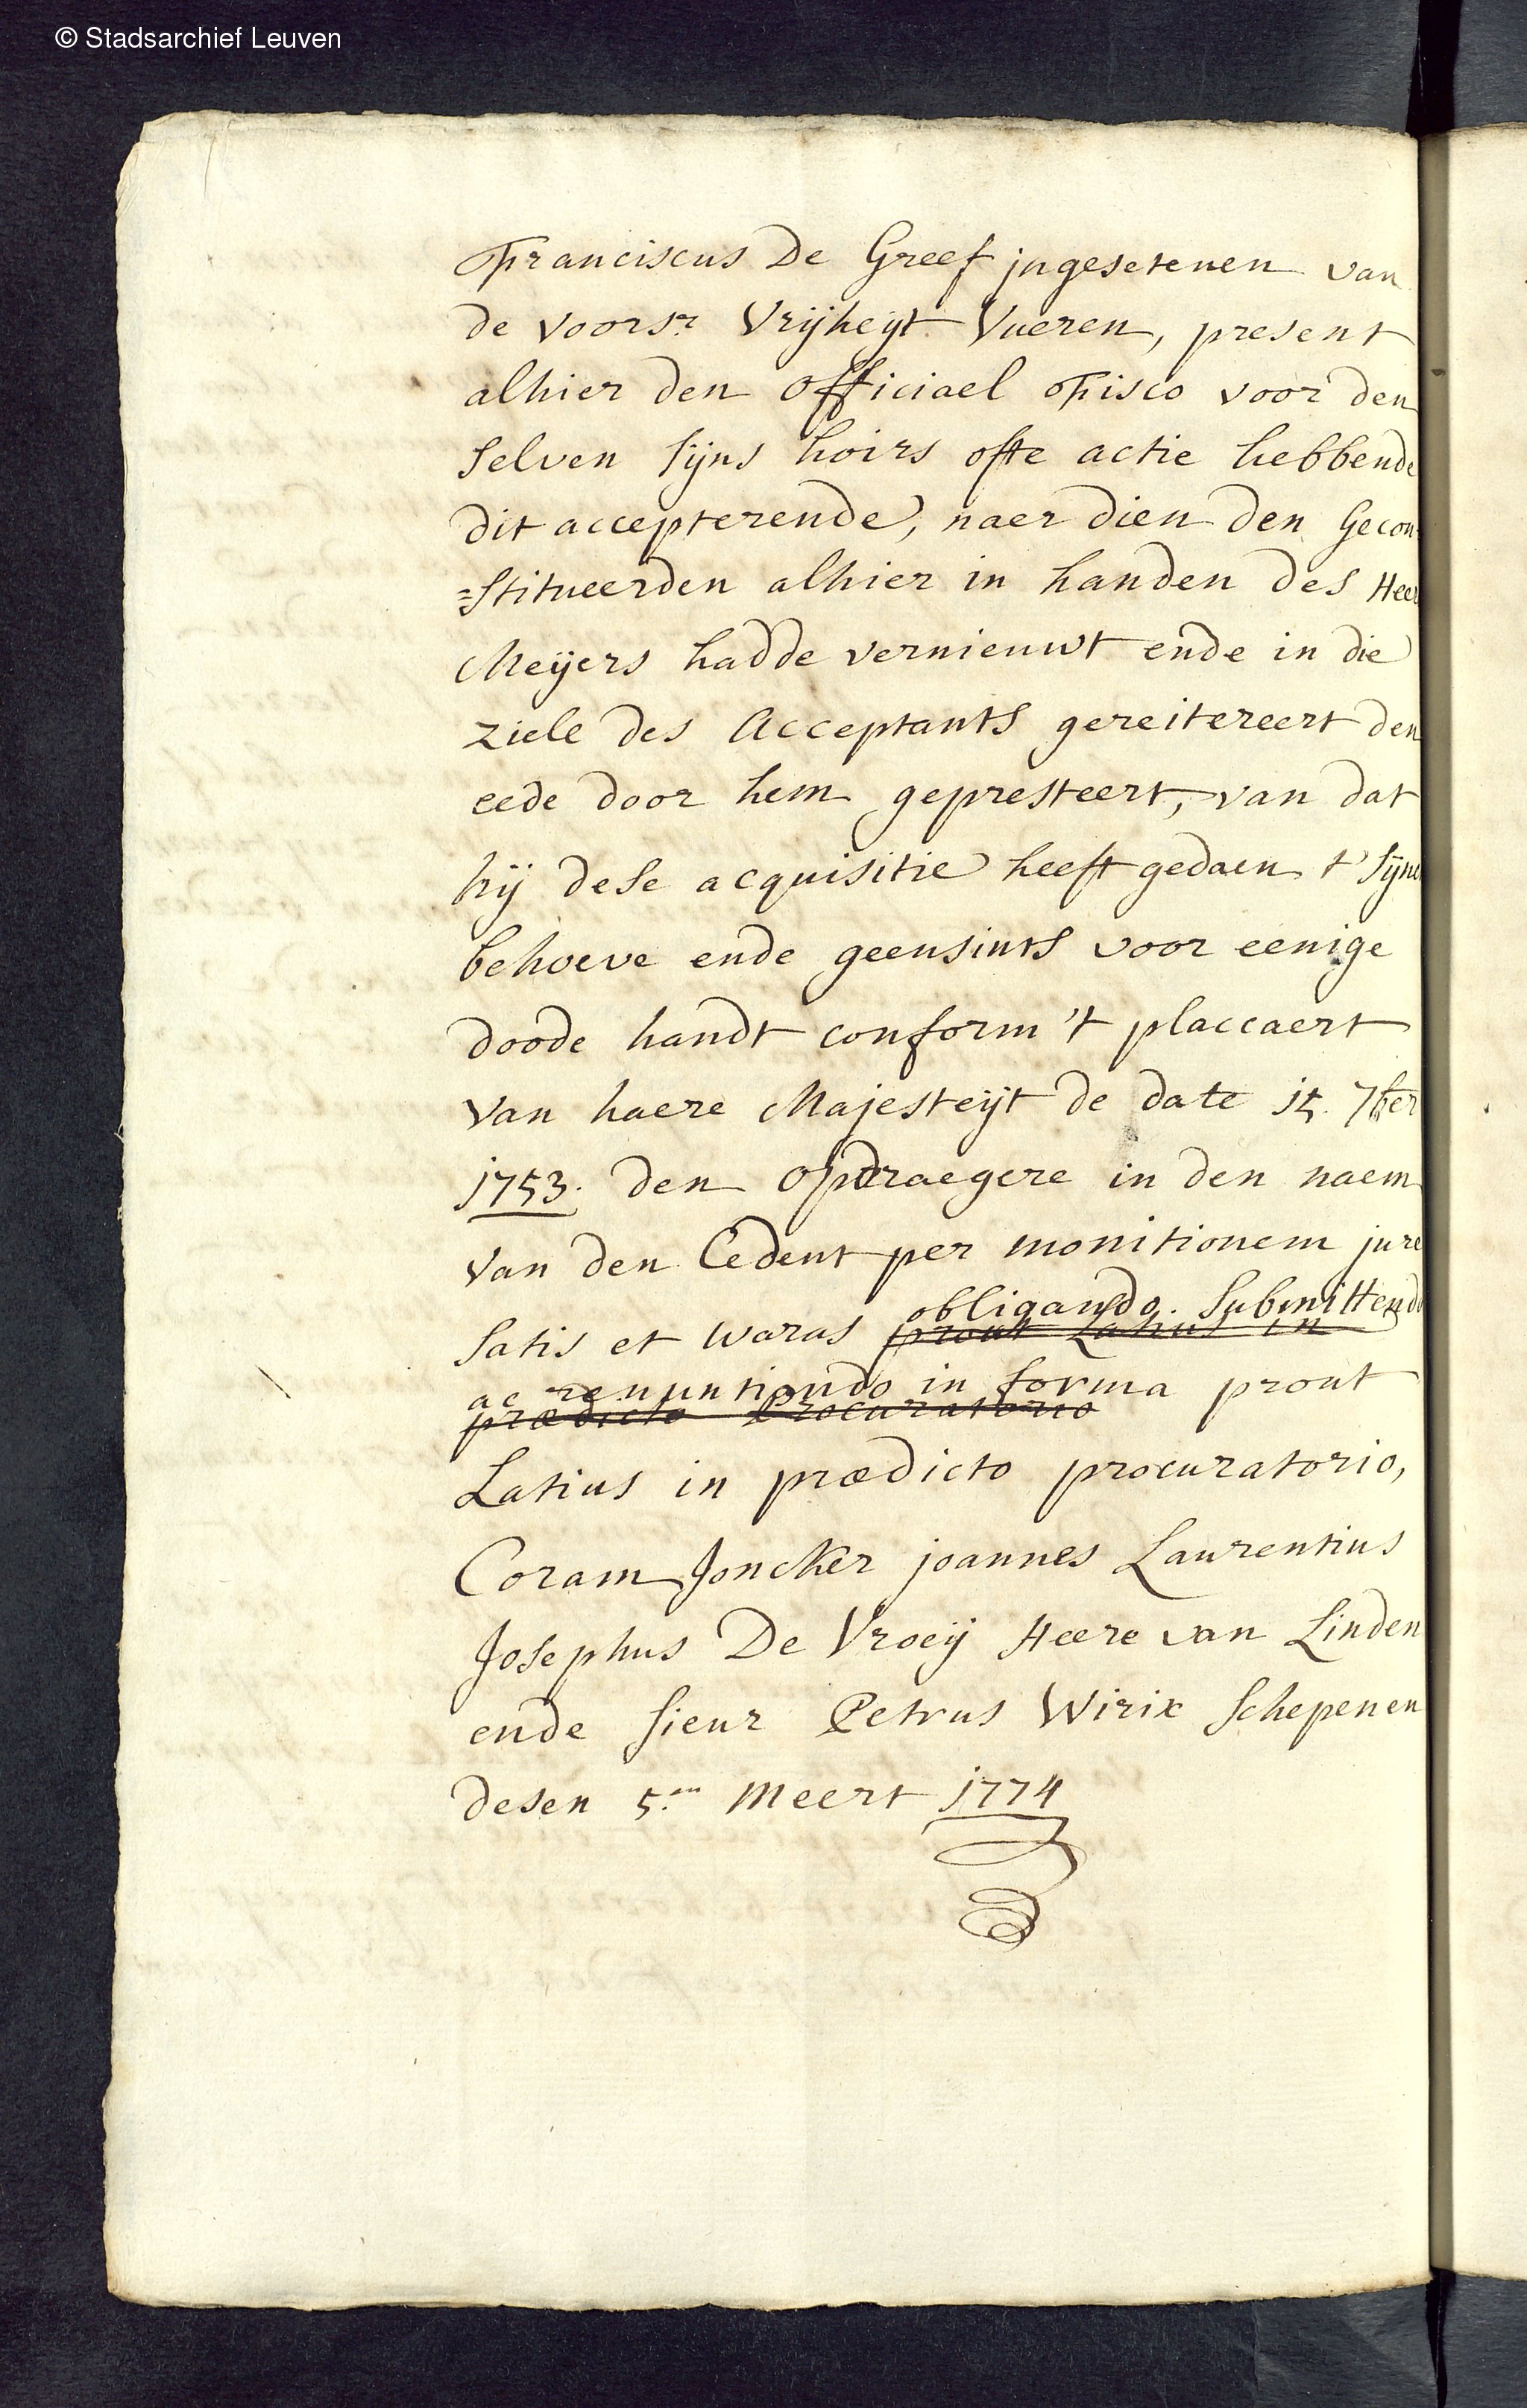 © Stadsarchief Leuven
Franciscus De Greef jngesetenen van
de voorsr. Vrijheijt Vueren, present
alhier den officiael Fisco voor den
selven sijns hoirs ofte actie hebbende
dit accepterende, naer dien den Gecon-
=stitueerden alhier in handen des Heer
Meijers hadde vernieuwt ende in die
ziele des Acceptants gereitereert den
eede door hem gepresteert, van dat
hij dese acquisitie heeft gedaen t' sijne
behoeve ende geensints voor eenige
doode handt conform 't placcaert
van haere Majesteijt de date 15. 7ber
1753. den opdraegere in den naem
van den Cedent per monitionem jure
obligando. Submittendo
satis et waras prout Latius in
ac renuntiando in forma prout
prædicto Procuratorio
Latius in prædicto procuratorio,
Coram Joncker joannes Laurentius
Josephus De Vroeij Heere van Linden
ende sieur Petrus Wirix Schepenen
desen 5.en Meert 1774